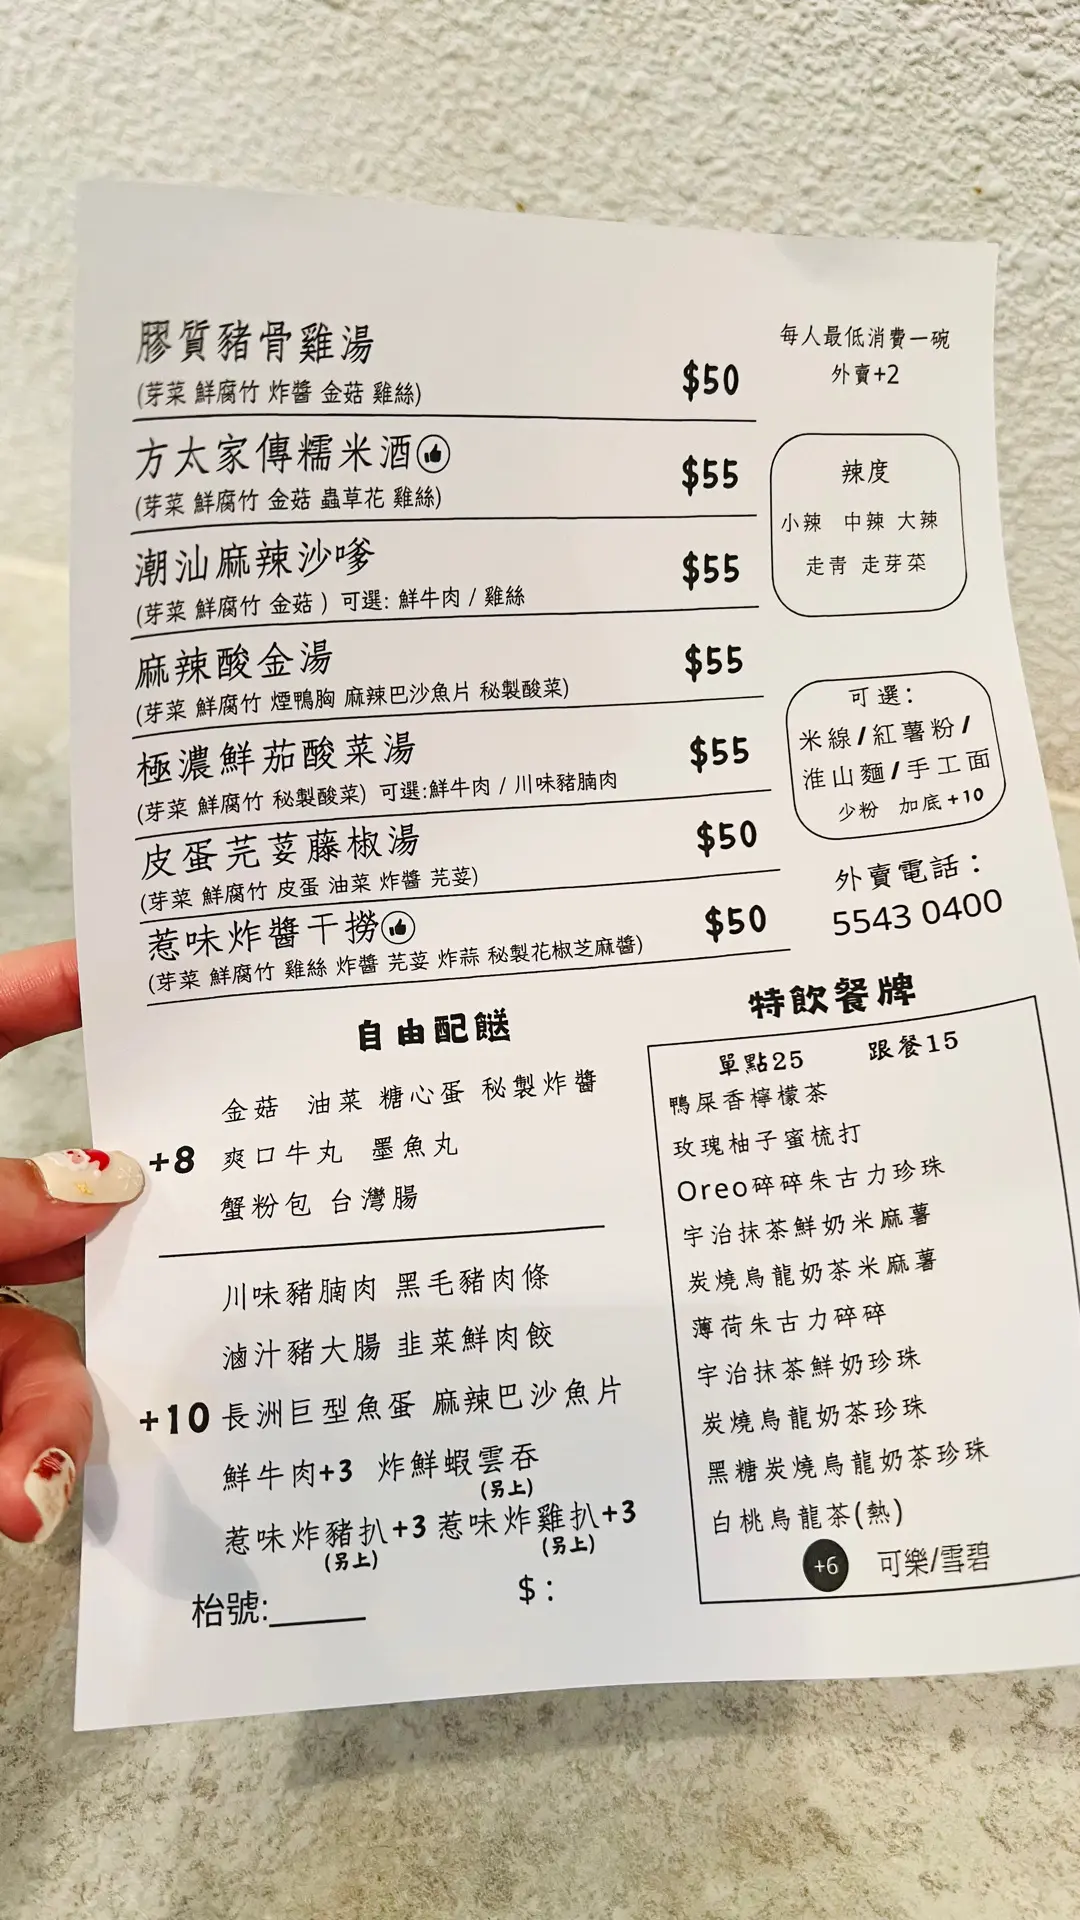 膠質豬骨雞湯
(芽菜 鮮腐竹 炸醬 金菇 雞絲)
$50
方太家傳糯米酒
(芽菜 鮮腐竹 金菇 蟲草花 雞絲)
$55
潮汕麻辣沙嗲
(芽菜 鮮腐竹 金菇 ) 可選: 鮮牛肉 / 雞絲
$55
麻辣酸金湯
(芽菜 鮮腐竹 煙鴨胸 麻辣巴沙魚片 秘製酸菜)
$55
極濃鮮茄酸菜湯
(芽菜 鮮腐竹 秘製酸菜) 可選:鮮牛肉 / 川味豬腩肉
$55
皮蛋芫荽藤椒湯
(芽菜 鮮腐竹 皮蛋 油菜 炸醬 芫荽)
$50
惹味炸醬干撈
(芽菜 鮮腐竹 雞絲 炸醬 芫荽 炸蒜 秘製花椒芝麻醬)
$50
每人最低消費一碗
外賣+2
辣度
小辣 中辣 大辣
走青 走芽菜
可選:
米線/紅薯粉/
淮山麵/手工面
少粉 加底+10
外賣電話:
5543 0400
自由配餸
+8
金菇 油菜 糖心蛋 秘製炸醬
爽口牛丸 墨魚丸
蟹粉包 台灣腸
+10
川味豬腩肉 黑毛豬肉條
滷汁豬大腸 韭菜鮮肉餃
長洲巨型魚蛋 麻辣巴沙魚片
鮮牛肉+3 炸鮮蝦雲吞
(另上)
惹味炸豬扒+3 惹味炸雞扒+3
(另上) (另上)
枱號:______ $:
特飲餐牌
單點25 跟餐15
鴨屎香檸檬茶
玫瑰柚子蜜梳打
Oreo碎碎朱古力珍珠
宇治抹茶鮮奶米麻薯
炭燒烏龍奶茶米麻薯
薄荷朱古力碎碎
宇治抹茶鮮奶珍珠
炭燒烏龍奶茶珍珠
黑糖炭燒烏龍奶茶珍珠
白桃烏龍茶(熱)
+6 可樂/雪碧